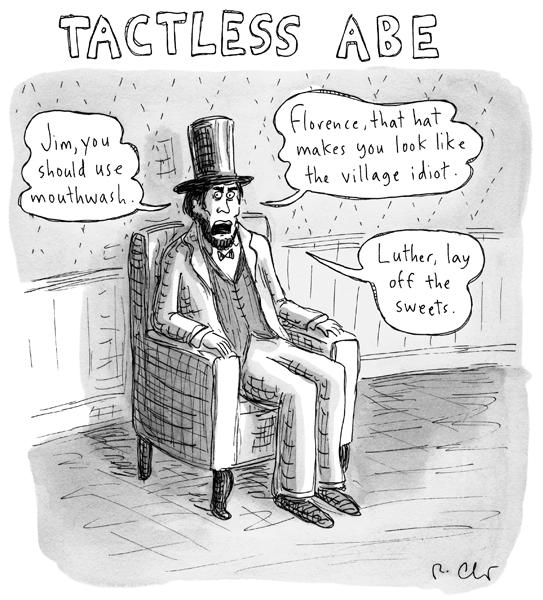 TACTLESS ABE
Jim, you
should use
mouthwash.
Florence, that hat
makes you look like
the village idiot.
Luther, lay
off the
sweets.